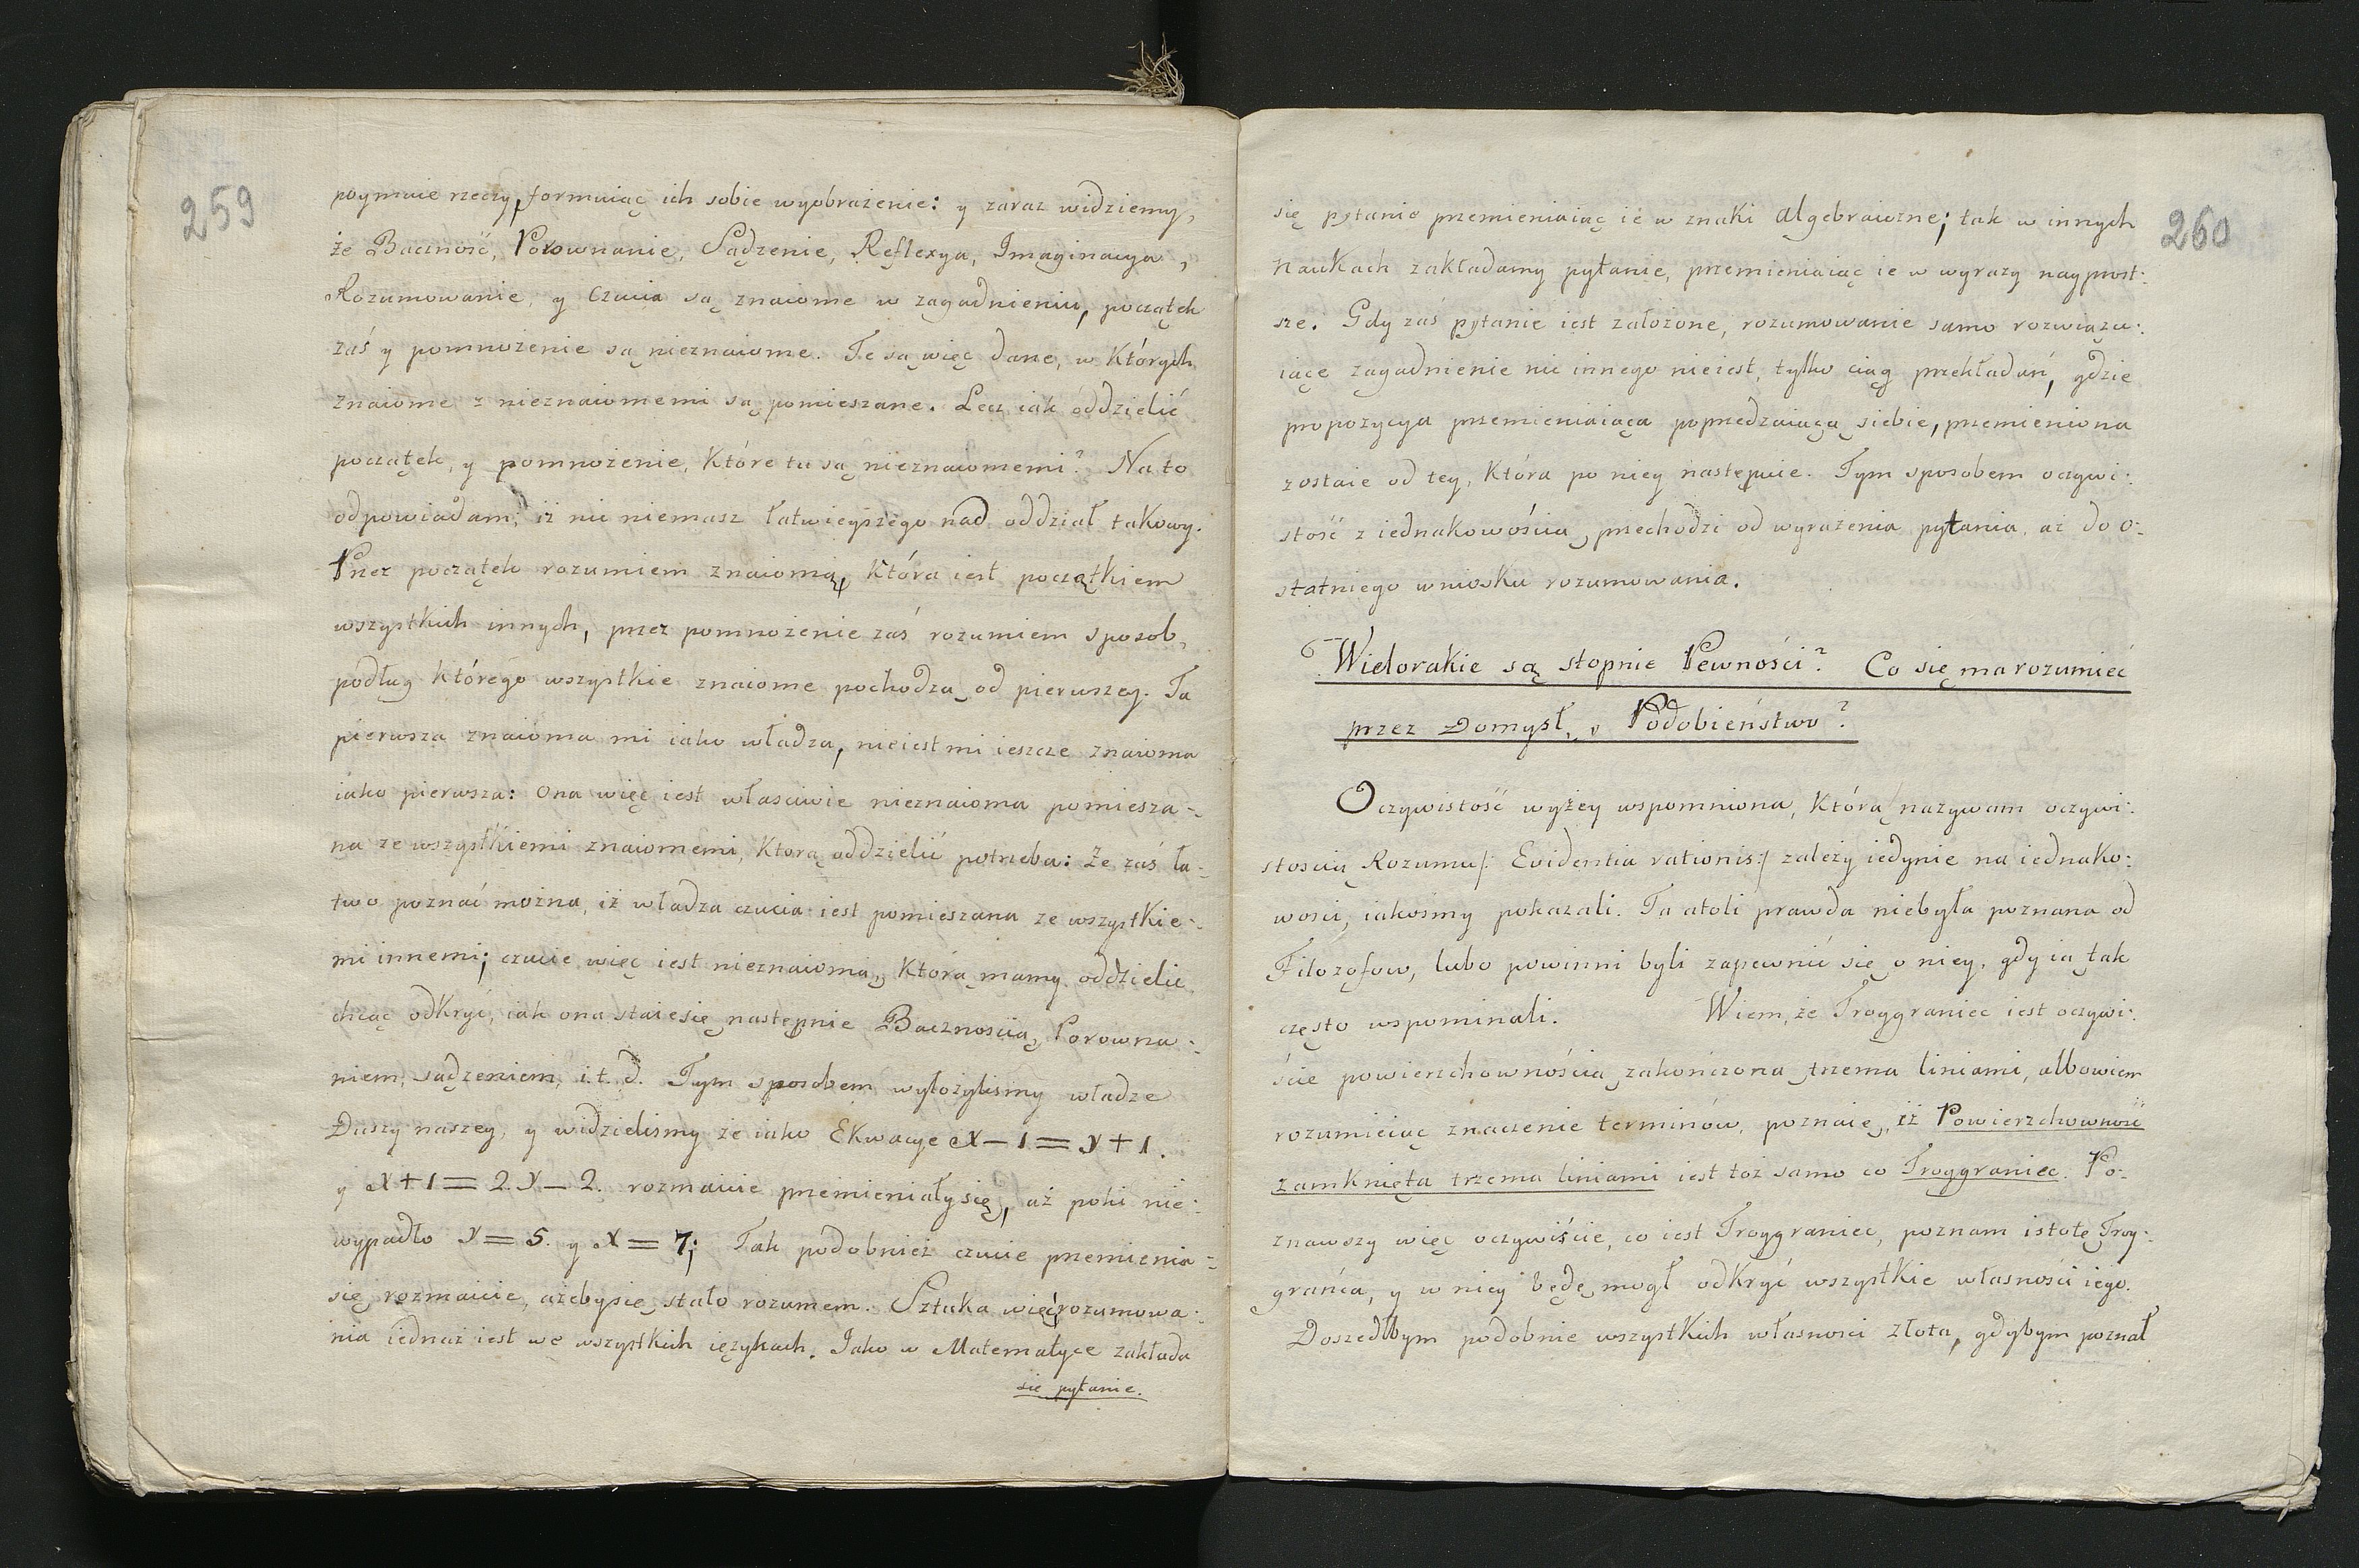 259
poymuie rzeczy, formuiąc ich sobie wyobrażenie: y zaraz widziemy,
że Baczność, Porownanie, Sądzenie, Reflexya, Imaginacya,
Rozumowanie, y Czucia są znaiome w zagadnieniu, początek
zaś y pomnożenie są nieznaiome. Te są więc dane, w Których
znaiome z nieznaiomemi są pomieszane. Lecz iak oddzielić
początek, y pomnożenie, Które tu są nieznaiomemi? Na to
odpowiadam, iż nic niemasz łatwieyszego nad oddział takowy.
Przez początek rozumiem znaiomą, Która iest początkiem
wszystkich innych, przez pomnożenie zaś rozumiem sposob,
podług Którego wszystkie znaiome pochodzą od pierwszey. Ta
pierwsza znaioma mi iako władza, nieiest mi ieszcze znaioma
iako pierwsza: Ona więc iest właściwie nieznaioma pomiesza-
na ze wszystkiemi znaiomemi, Ktorą oddzielić potrzeba: Że zaś ła-
two poznać można, iż władza czucia iest pomieszana ze wszystkie-
mi innemi; czucie więc iest nieznaiomą, Którą mamy oddzielić
chcąc odkryć, iak ona staie się następnie Bacznością, Porowna-
niem, sądzeniem, i.t.d. Tym sposobem wyłożyliśmy władze
Duszy naszey, y widzieliśmy że iako Ekwacye x – 1 = y + 1.
y x + 1 = 2 y – 2. rozmaicie przemieniały się, aż poki nie-
wypadło y = 5. y x = 7; Tak podobnież czucie przemienia-
się rozmaicie, ażeby się stało rozumem. Sztuka więc rozumowa-
nia iednaż iest we wszystkich ięzykach. Iako w Matematyce zakłada
się pytanie.
260
się pytanie przemieniaiąc ie w znaki algebraiczne; tak w innych
Naukach zakładamy pytanie, przemieniaiąc ie w wyrazy nayprost:
sze. Gdy zaś pytanie iest założone, rozumowanie samo rozwiązu:
iące zagadnienie nic innego nieiest, tylko ciąg przekładań, gdzie
propozycya przemieniaiąca poprzedzaiącą siebie, przemieniona
zostaie od tey, Która po niey następuie. Tym sposobem oczywi:
stość z iednakowością przechodzi od wyrażenia pytania, aż do o:
statniego wniosku rozumowania.
6 Wielorakie są stopnie Pewności? Co się ma rozumieć
przez Domysł, y Podobieństwo?
Oczywistość wyżey wspomniona, Którą nazywam oczywi:
stością Rozumu /: Evidentia rationis :/ zależy iedynie na iednako:
wości, iakośmy pokazali. Ta atoli prawda niebyła poznana od
Filozofow, lubo powinni byli zapewnić się o niey, gdy ią tak
często wspominali. Wiem, że Troygraniec iest oczywi:
ście powierzchownością zakończoną trzema liniami, albowiem
rozumieiąc znaczenie terminów, poznaię, iż Powierzchowność
zamknięta trzema liniami iest toż samo co Troygraniec. Po:
znawszy więc oczywiście, co iest Troygraniec, poznam istotę Troy:
grańca, y w niey będę mogł odkryć wszystkie własności iego.
Doszedłbym podobnie wszystkich własności złota, gdybym poznał